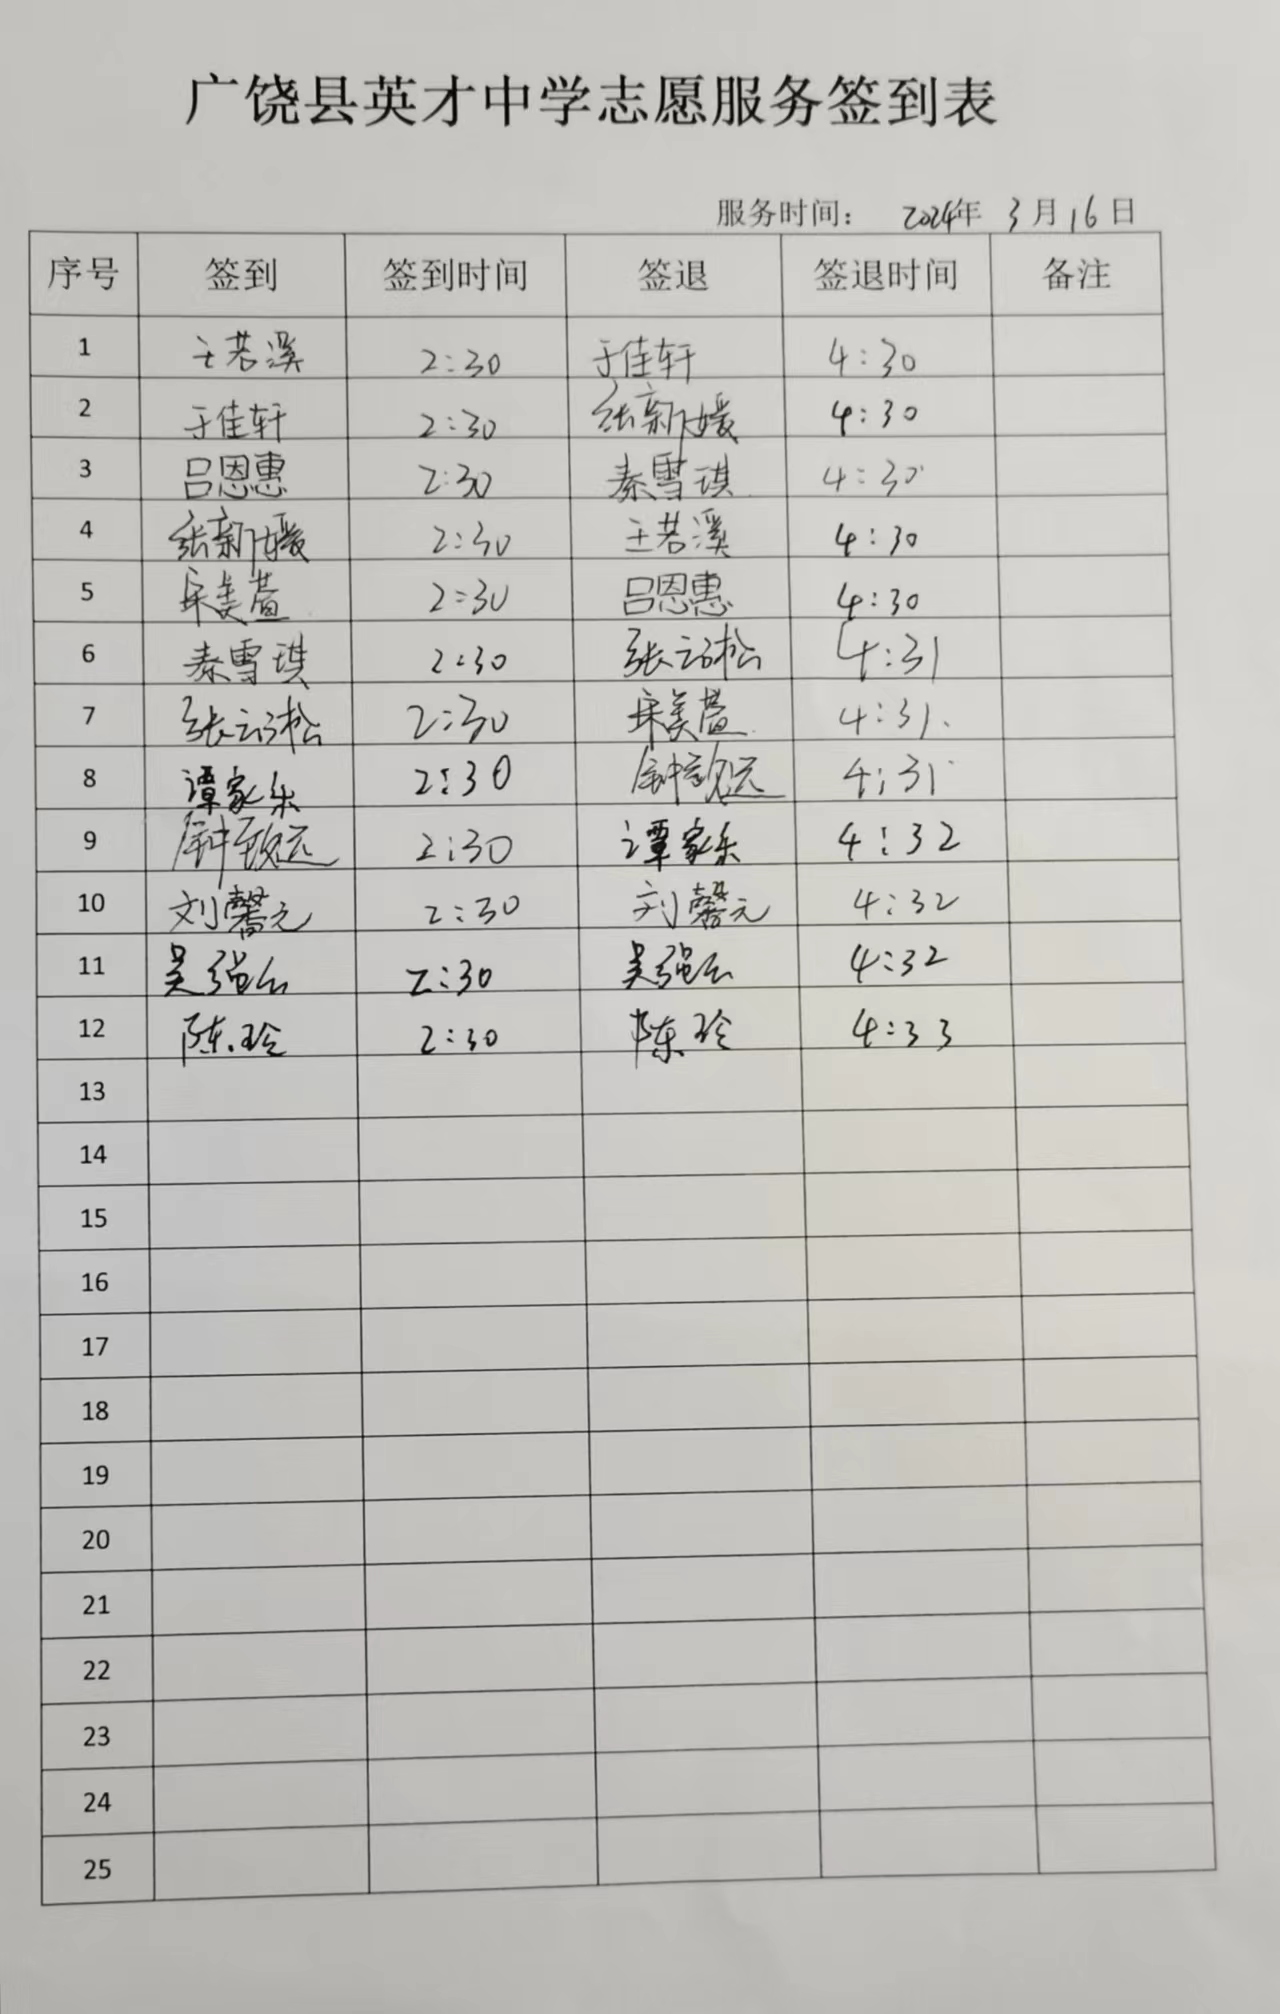 广饶县英才中学志愿服务签到表
服务时间： 2024年 3月16日
序号 签到 签到时间 签退 签退时间 备注
1 王若溪 2:30 于佳轩 4:30
2 于佳轩 2:30 张新媛 4:30
3 吕恩惠 2:30 秦雪琪 4:30
4 张新媛 2:30 王若溪 4:30
5 宋美萱 2:30 吕恩惠 4:30
6 秦雪琪 2:30 张云松 4:31
7 张云松 2:30 宋美萱 4:31
8 谭家乐 2:30 致远 4:31
9 致远 2:30 谭家乐 4:32
10 刘馨元 2:30 刘馨元 4:32
11 吴强 2:30 吴强 4:32
12 陈玲 2:30 陈玲 4:33
13
14
15
16
17
18
19
20
21
22
23
24
25